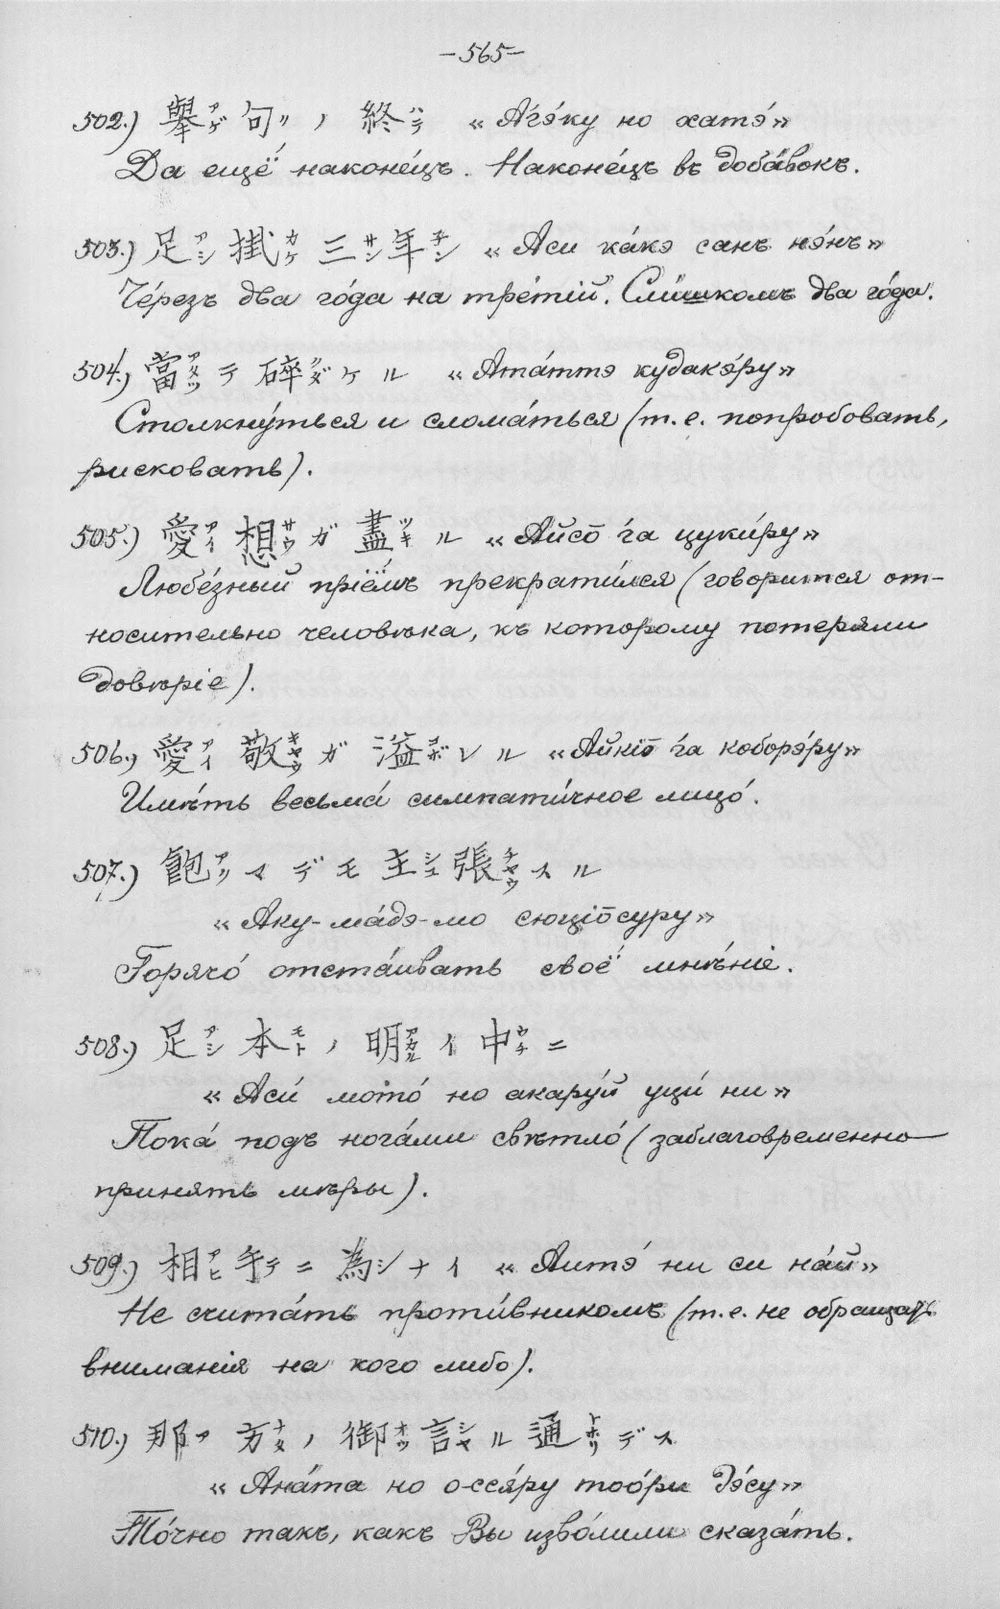 –565–
502.) 擧アゲ句クノ 終ハテ «Агэ́ку но хатэ́»
Да ещё наконе́цъ. Наконе́цъ въ доба́вокъ.
503.) 足アシ掛カケ三サン年ネン «Аси ка́кэ санъ нэ́нъ»
Че́резъ два го́да на тре́тій. Сли́шкомъ два го́да.
504.) 當アタツテ碎クダケル «Ата́ттэ кудакэ́ру»
Столкну́ться и слома́ться (т.е. попробовать,
рисковать).
505.) 愛アイ想サウガ盡ツキル «Айсо̄ га цуки́ру»
Любе́зный пріёмъ прекрати́лся (говорится от-
носительно человѣка, къ которому потеряли
довѣріе).
506.) 愛アイ敬キヤウガ 溢コボレル «Айкіо̄ га коборэ́ру»
Имѣ́ть весьма́ симпати́чное лицо́.
507.) 飽アクマデモ主シユ張チヤウスル
«Аку-ма́дэ-мо сюціо̄суру»
Горячо́ отста́ивать своё мнѣ́ніе.
508.) 足アシ本モトノ明アカルイ中ウチニ
«Аси́ мото́ но акару́й уци́ ни»
Пока́ подъ нога́ми свѣтло́ (заблаговременно
принять мѣры).
509.) 相アヒ手テニ為シナイ «Аитэ́ ни си на́й»
Не счита́ть проти́вникомъ (т.е. не обращать
вниманія на кого либо).
510.) 那ア方ナタノ御オツ言シヤル通トホリデス
«Ана́та но о-ссяру тоо́ри дэ́су»
То́чно такъ, какъ Вы изво́лили сказа́ть.